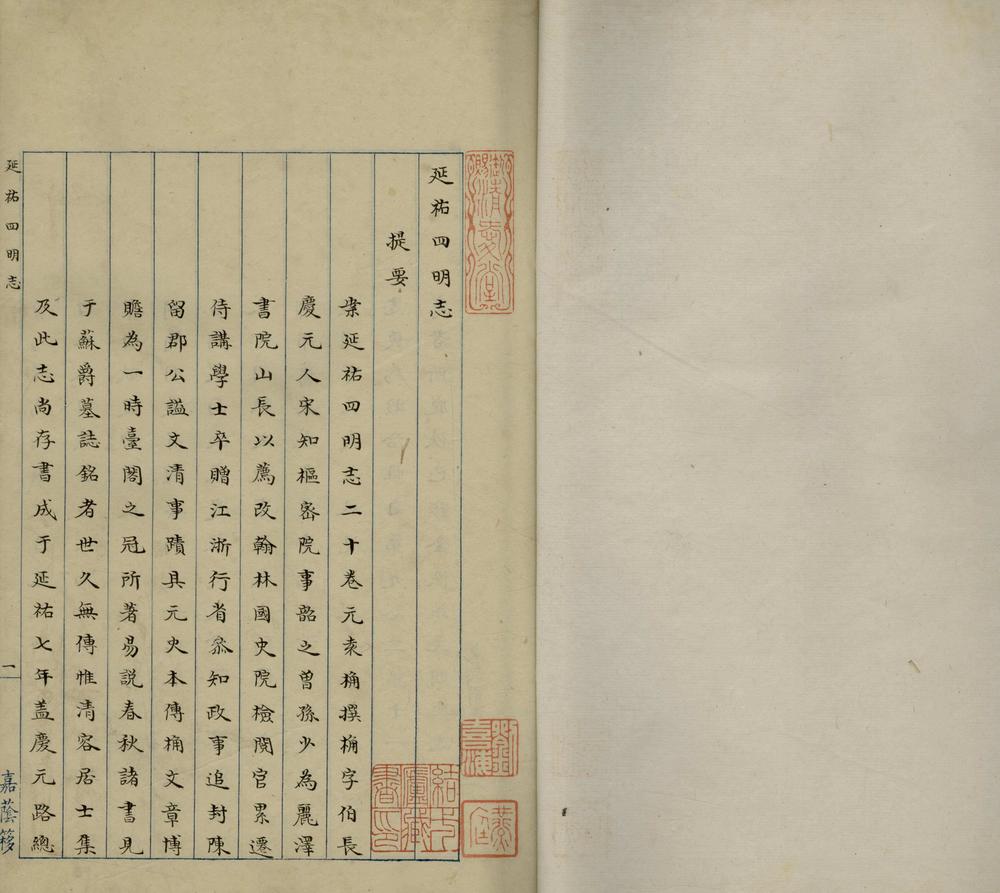 延祐四明志
提要
案延祐四明志二十卷元袁桷撰桷字伯長
慶元人宋知樞密院事韶之曽孫少為麗澤
書院山長以薦改翰林國史院檢閱官累遷
侍講學士卒贈江浙行省叅知政事追封陳
留郡公謚文清事蹟具元史本傳桷文章博
贍為一時臺閣之冠所著易説春秋諸書見
于蘇爵墓誌銘者世久無傳惟清容居士集
及此志尚存書成于延祐七年盖慶元路總
延祐四明志
一
嘉蔭簃
御賜清愛堂
劉喜海
燕庭
結一廬藏書印